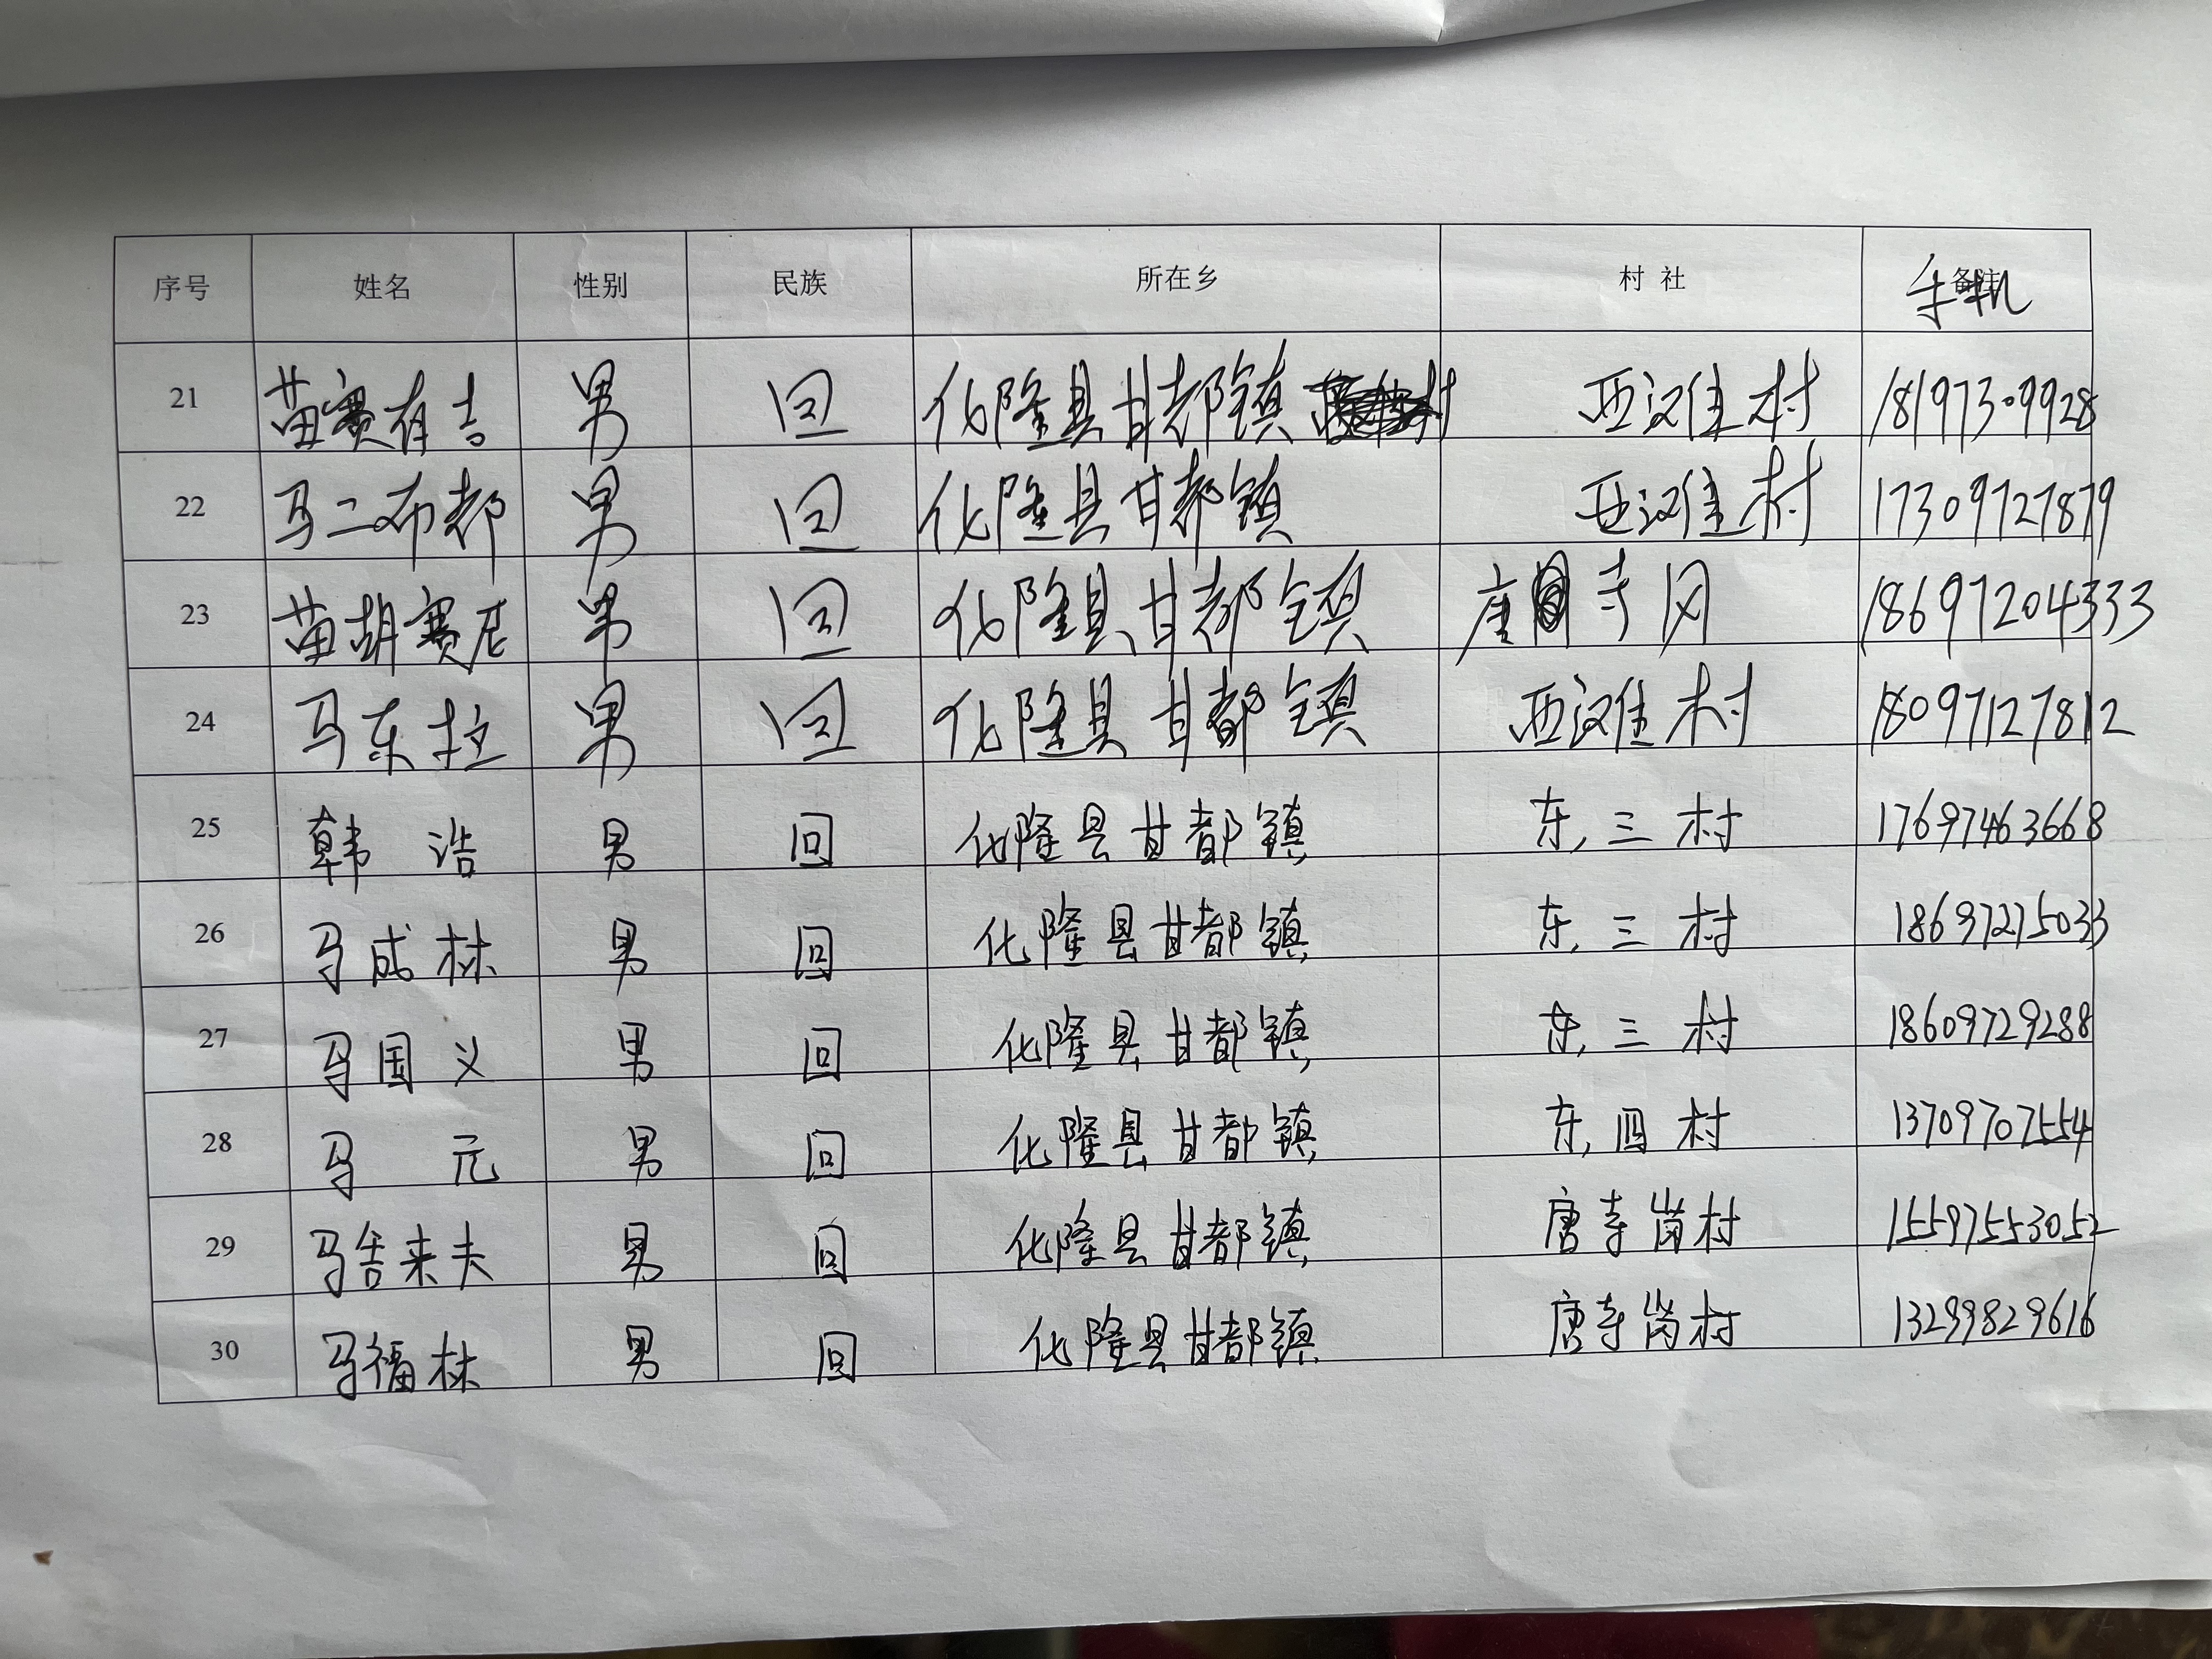 序号 姓名 性别 民族 所在乡 村社 手机
21 苗赛有吉 男 回 化隆县甘都镇 亚汉佳村 18197309928
22 马二布都 男 回 化隆县甘都镇 亚汉佳村 17309727879
23 苗胡赛尼 男 回 化隆县甘都镇 唐寺冈 18697204333
24 马东拉 男 回 化隆县甘都镇 亚汉佳村 18097127812
25 韩浩 男 回 化隆县甘都镇 东三村 17697463668
26 马成林 男 回 化隆县甘都镇 东三村 18697275033
27 马国义 男 回 化隆县甘都镇 东三村 18609729288
28 马元 男 回 化隆县甘都镇 东四村 13709707554
29 马舍来夫 男 回 化隆县甘都镇 唐寺岗村 15597553052
30 马福林 男 回 化隆县甘都镇 唐寺岗村 13299829616